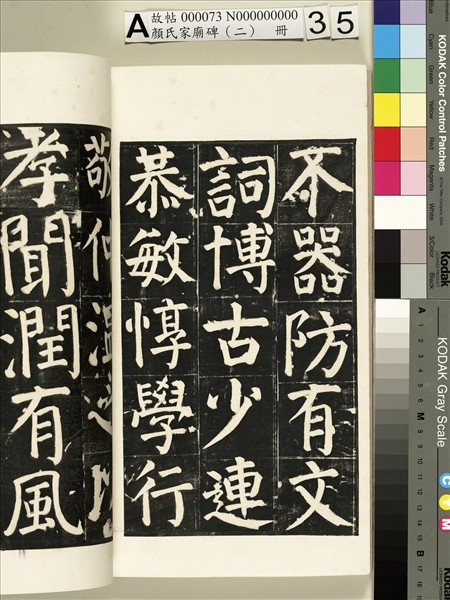 A
故帖 000073 N000000000
顏氏家廟碑（二） 冊
35
不器防有文
詞博古少連
恭敏惇學行
敬仲温之以
孝聞潤有風
KODAK Color Control Patches
Blue
Cyan
Green
Yellow
Red
Magenta
White
3/Color
Black
Kodak
KODAK Gray Scale
A 1 2 3 4 5 6 M 8 9 10 11 12 13 14 15 B 17 18
C Y M
Kodak